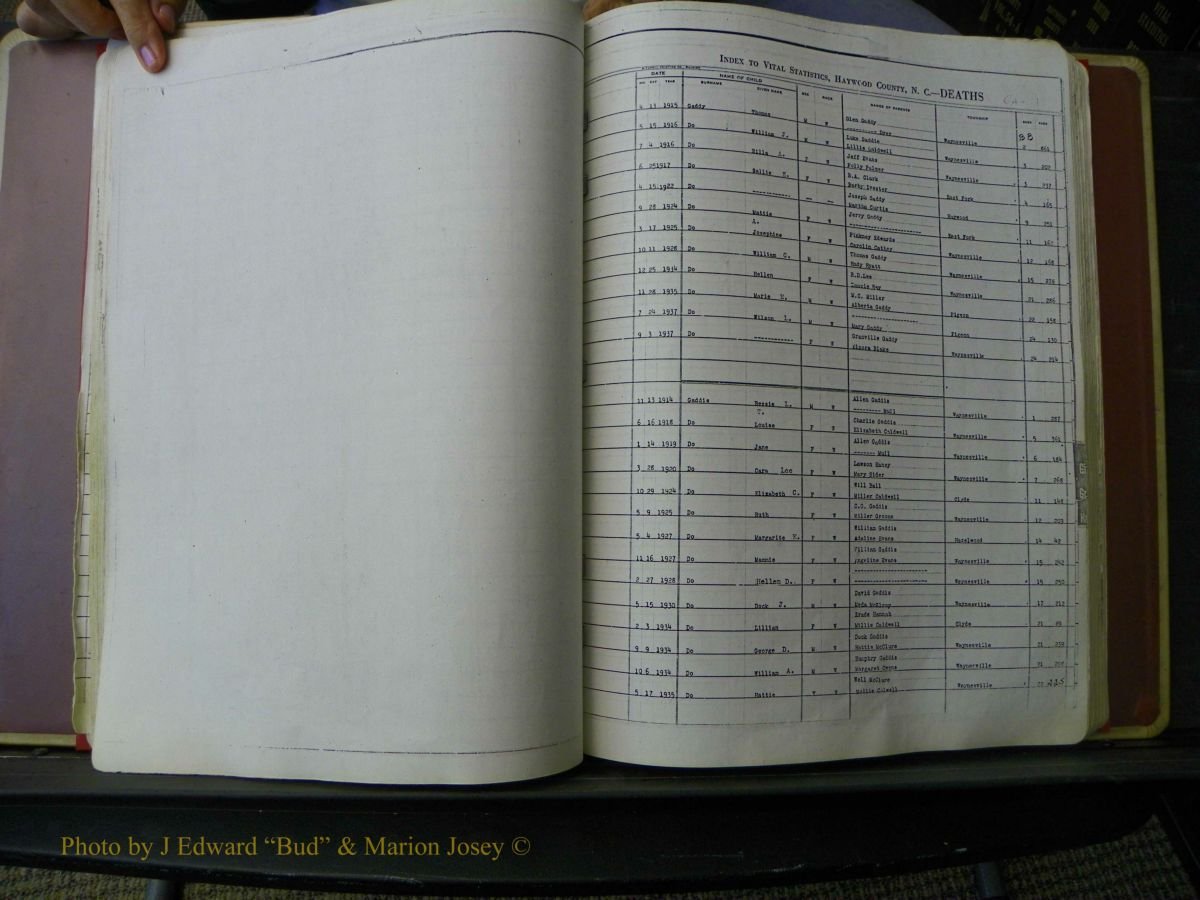 INDEX TO VITAL STATISTICS, HAYWOOD COUNTY, N. C.—DEATHS
DATE NAME OF CHILD SEX RACE NAMES OF PARENTS TOWNSHIP
MO. DAY YEAR SURNAME GIVEN NAME
4 13 1915 Gaddy Thomas M W Glen Gaddy
5 15 1916 Do William J. M W Luke Gaddie Waynesville 2 661
Lillie Caldwell
7 4 1916 Do F W Jeff Evans Waynesville 3 202
Polly Palmer
6 25 1917 Do Sallie F W B.A. Clark Waynesville 3 237
4 15 1922 Do ---------- Joseph Gaddy East Fork 4 165
Martha Curtis
9 28 1924 Do Mattie A. F W Jerry Gaddy Haywood 9 251
3 17 1925 Do Josephine F W Pinkney Edwards East Fork 11 167
Carolin Cathey
10 11 1928 Do William C. M W Thomas Gaddy Waynesville 12 168
Hyatt
12 25 1934 Do Hellen F W R.D.Lee Waynesville 15 276
11 28 1935 Do Marie W W.C. Miller Waynesville 21 286
Alberta Gaddy
7 24 1937 Do Wilson L. M W -------------------- Pigeon 22 158
Mary Gaddy
9 3 1937 Do ------------ F W Granville Gaddy Pigeon 24 130
Blake Waynesville 24 214
11 13 1914 Gaddis Bessie L. T. M W Allen Gaddis
--------- Mull Waynesville 1 287
6 16 1918 Do Louise F W Charlie Gaddis
Elizabeth Caldwell Waynesville 5 361
1 14 1919 Do Jane F W Allen Gaddis
------- Mull Waynesville 6 184
3 28 1920 Do Cara Lee F W Lawson Haney
Mary Rider Waynesville 7 268
10 29 1924 Do Elizabeth C. F W Will Ball
Miller Caldwell Clyde 11 148
5 9 1925 Do Ruth F W C.C. Gaddis
Miller Grooms Waynesville 12 203
5 4 1927 Do Margarite F W William Gaddis
Adaline Evans Hazelwood 14 42
11 16 1927 Do Mannie F W William Gaddis
Angeline Evans Waynesville 15 242
2 27 1928 Do Hellen D. F W --------------------
-------------------- Waynesville 15 250
5 15 1930 Do Dock J. M W David Gaddis
Meda McElroy Waynesville 17 212
2 3 1934 Do Lillian F W Hannah
Millie Caldwell Clyde 21 89
9 9 1934 Do George D. M W Dock Gaddis
Hattie McClure Waynesville 21 239
10 6 1934 Do William A. M W Humphry Gaddis
Margaret Owens Waynesville 21
5 17 1935 Do Hattie Well McClure
Mollie Colwell Waynesville 225
Photo by J Edward “Bud” & Marion Josey ©